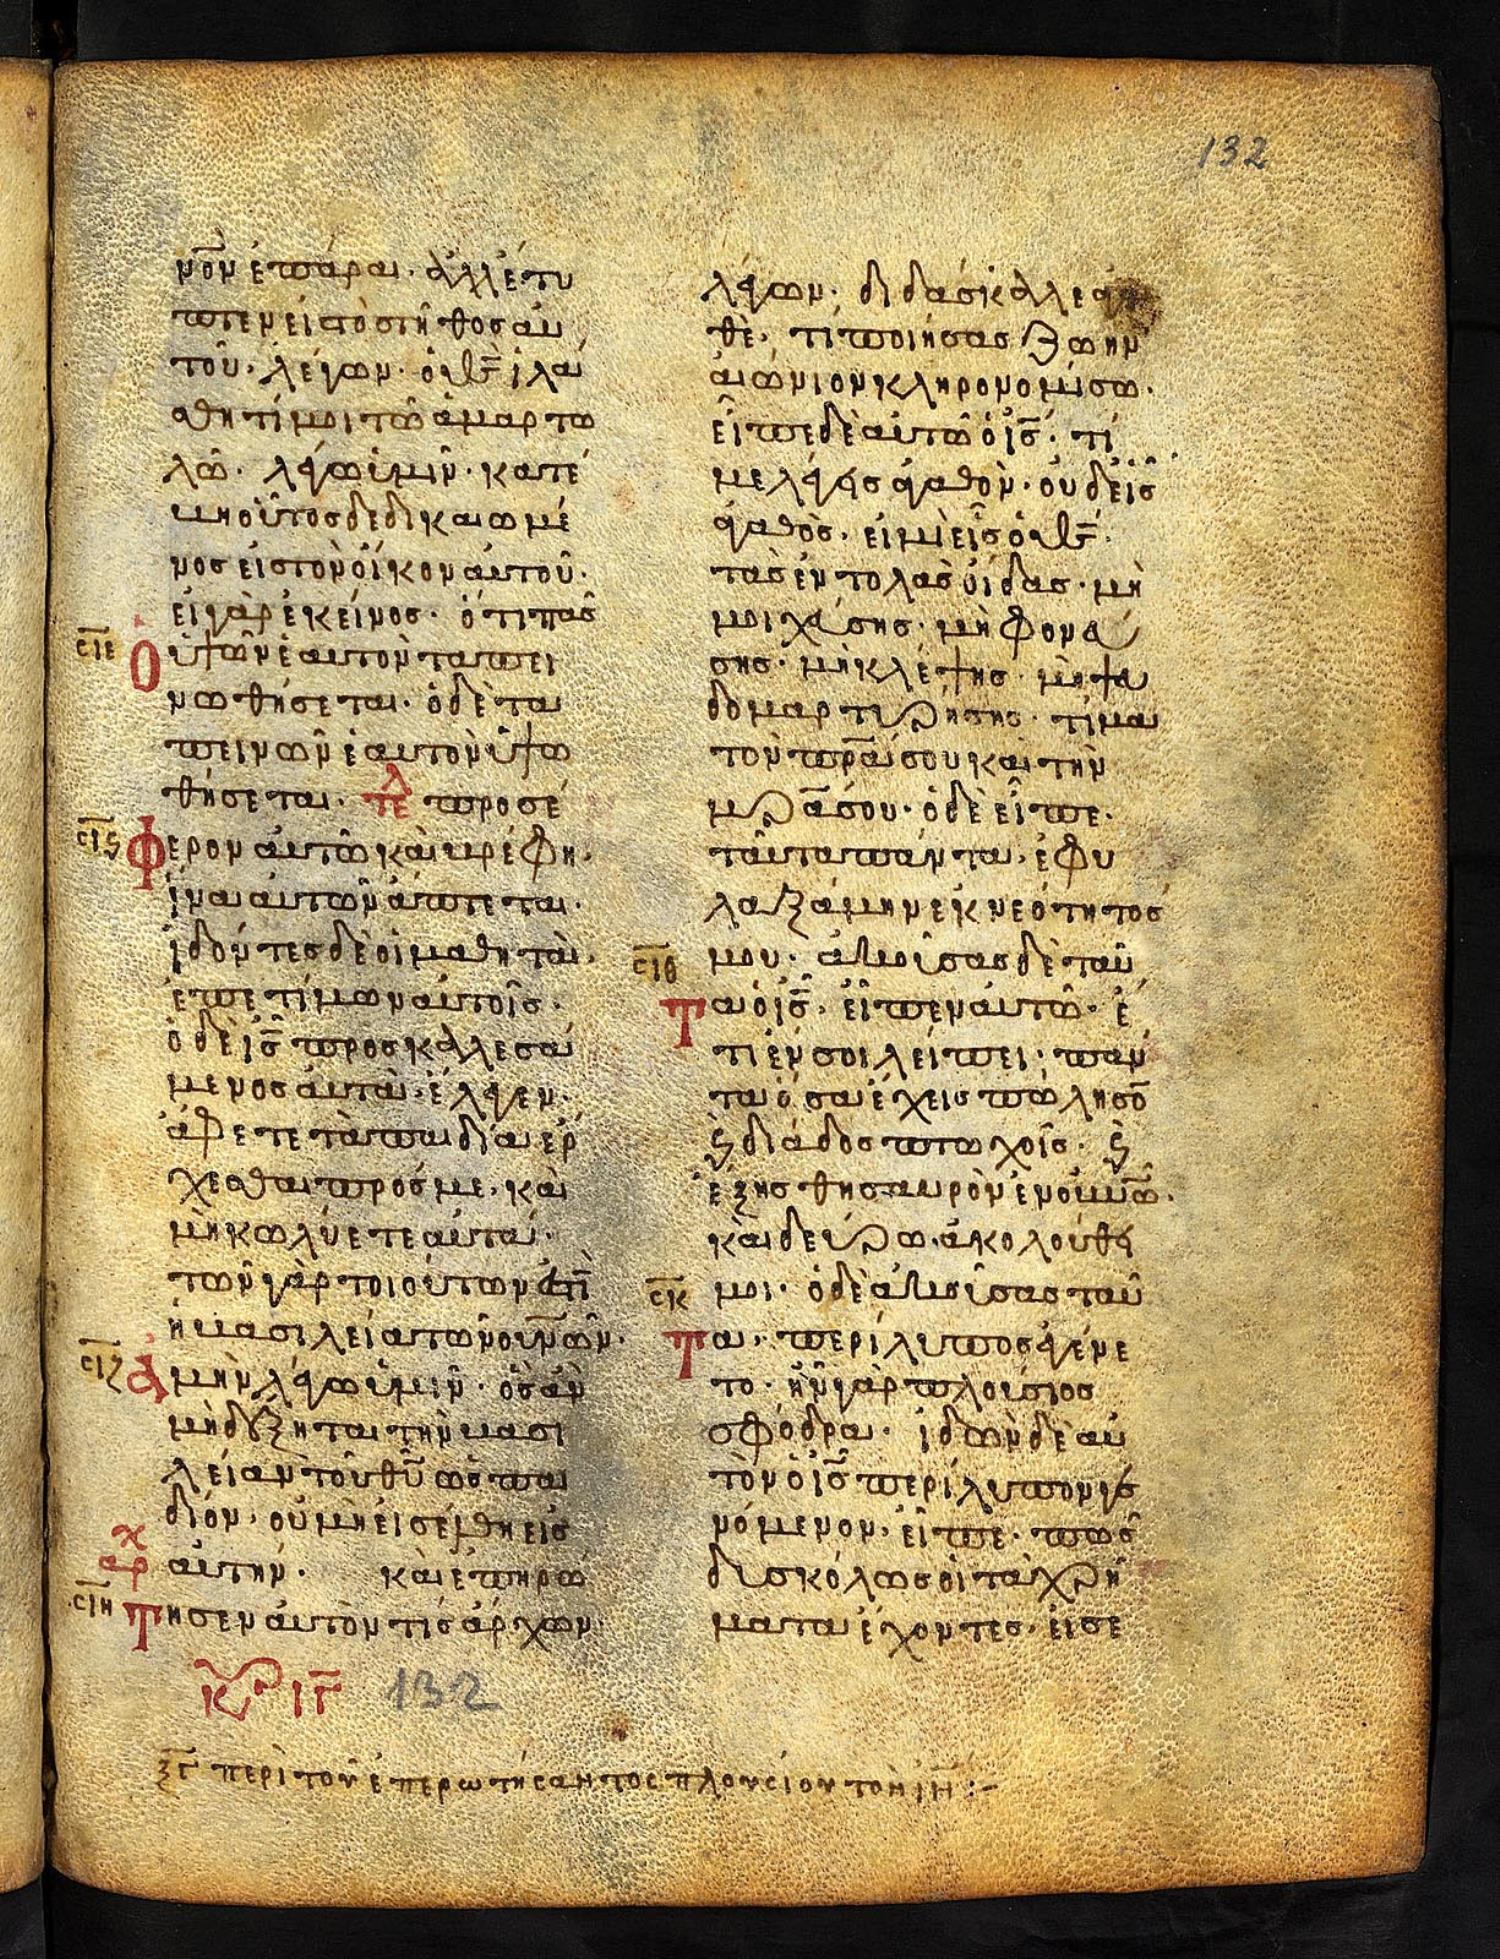 132
νὸν ἐπάραι· ἀλλ' ἔτυ
πτεν εἰς τὸ στῆθος αὐ
τοῦ· λέγων· ὁ θς̅ ἱλά
σθητί μοι τῶ ἁμαρτω
λῶ· λέγω ὑμῖν· κατέ
βη οὗτος δεδικαιωμέ
νος εἰς τὸν οἶκον αὐτοῦ·
εἰ γὰρ ἐκεῖνος· ὅτι πᾶς
σιε Ο ὑψῶν ἑαυτὸν ταπει
νωθήσεται· ὁ δὲ τα
πεινῶν ἑαυτὸν ὑψω
θήσεται· τελ προσέ
σις Φερον αὐτῶ καὶ βρέφη·
ἵνα αὐτῶν ἅπτεται·
ἰδόντες δὲ οἱ μαθηταὶ·
ἐπετίμων αὐτοῖς·
ὁ δὲ ις̅ προσκαλεσά
μενος αὐτὰ· ἔλεγεν·
ἄφετε τὰ παιδία ἔρ
χεσθαι πρός με· καὶ
μὴ κωλύετε αὐτά·
τῶν γὰρ τοιούτων ἐστὶ
ἡ βασιλεία τῶν οὐνῶν·
σιζ Ἀμὴν λέγω ὑμῖν· ὃς ἂν
μὴ δέξηται τὴν βασι
λείαν τοῦ θυ̅ ὡς παι
δίον· οὐ μὴ εἰσέλθη εἰς
αρχ αὐτήν· καὶ ἐπηρώ
σιη Τησεν αὐτὸν τίς ἄρχων·
λέγων· διδάσκαλε ἀγα
θὲ· τί ποιήσας ζωὴν
αἰώνιον κληρονομήσω·
εἶπε δὲ αὐτῶ ὁ ις̅· τί
με λέγεις ἀγαθὸν· οὐδεὶς
ἀγαθὸς· εἰ μὴ εἷς ὁ θς̅·
τὰς ἐντολὰς οἶδας· μὴ
μοιχεύσης· μὴ φονεύ
σης· μὴ κλέψης· μὴ ψευ
δομαρτυρήσης· τίμα
τὸν πρα̅ σου καὶ τὴν
μρα̅ σου· ὁ δὲ εἶπε·
ταῦτα πάντα· ἐφυ
λαξάμην ἐκ νεότητος
σιθ μου· ἀκούσας δὲ ταῦ
Τα ὁ ις̅· εἶπεν αὐτῶ· ἔ
τι ἕν σοι λείπει· πάν
τα ὅσα ἔχεις πώλησο̅
ϗ διάδος πτωχοῖς· ϗ
ἕξης θησαυρὸν ἐν οὐνῶ·
καὶ δεῦρω· ἀκολούθει
σκ μοι· ὁ δὲ ἀκούσας ταῦ
Τα· περίλυπος ἐγένε
το· ἦν γὰρ πλούσιος
σφόδρα· ἰδὼν δὲ αὐ
τὸν ὁ ις̅ περίλυπον γε
νόμενον· εἶπε· πῶς
δυσκόλως οἱ τὰ χρή
ματα ἔχοντες· εἰσε
Κυρ ιγ̅ 132
ξγ̅ περὶ τοῦ ἐπερωτήσαντος πλουσίου τὸν ιν̅ :-